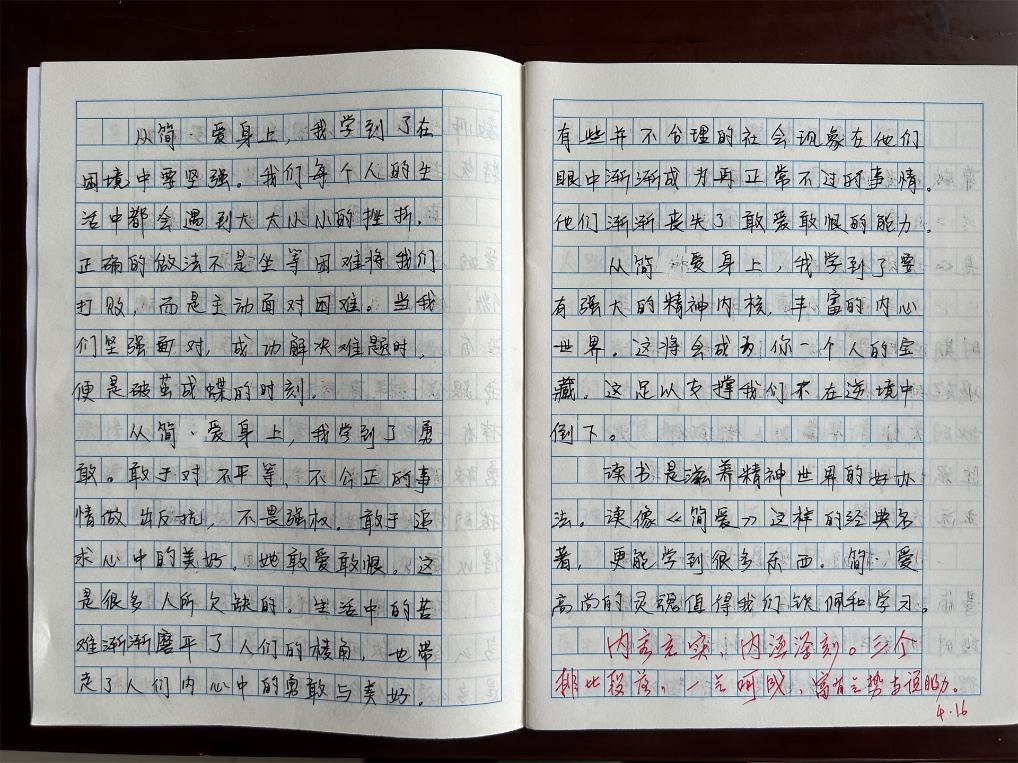 从简·爱身上，我学到了在
困境中要坚强。我们每个人的生
活中都会遇到大大小小的挫折，
正确的做法不是坐等困难将我们
打败，而是主动面对困难。当我
们坚强面对，成功解决难题时，
便是破茧成蝶的时刻。
从简·爱身上，我学到了勇
敢。敢于对不平等，不公正的事
情做出反抗，不畏强权，敢于追
求心中的美好。她敢爱敢恨。这
是很多人所欠缺的。生活中的苦
难渐渐磨平了人们的棱角，也带
走了人们内心中的勇敢与美好。
有些并不合理的社会现象在他们
眼中渐渐成为再正常不过的事情。
他们渐渐丧失了敢爱敢恨的能力。
从简·爱身上，我学到了要
有强大的精神内核，丰富的内心
世界。这将会成为你一个人的宝
藏。这足以支撑我们不在逆境中
倒下。
读书是滋养精神世界的好办
法。读像《简爱》这样的经典名
著，更能学到很多东西。简·爱
高尚的灵魂值得我们钦佩和学习。
内容充实，内涵深刻。三个
排比段落，一气呵成，富有气势与说服力。
4.16